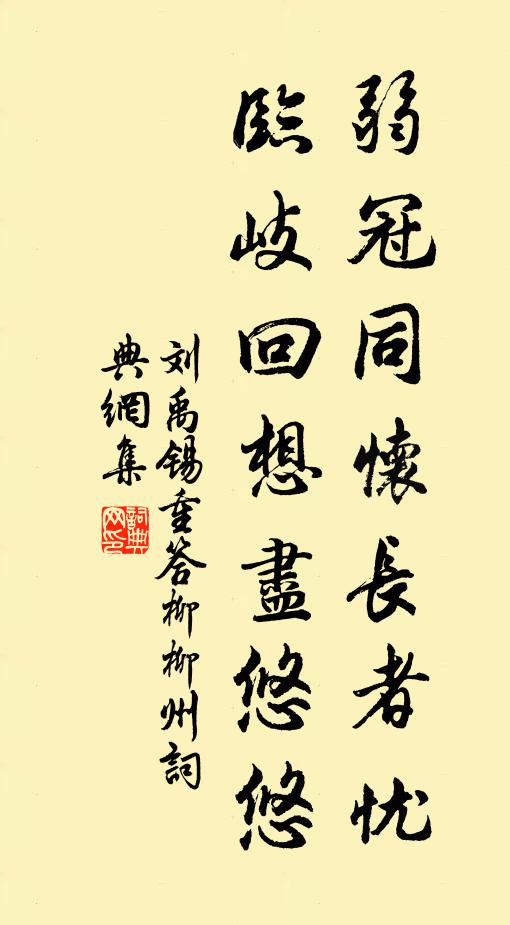 弱冠同懷長者忧
臨岐回想盡悠悠
刘禹锡重答柳柳州詞
典網集
詞典
网印